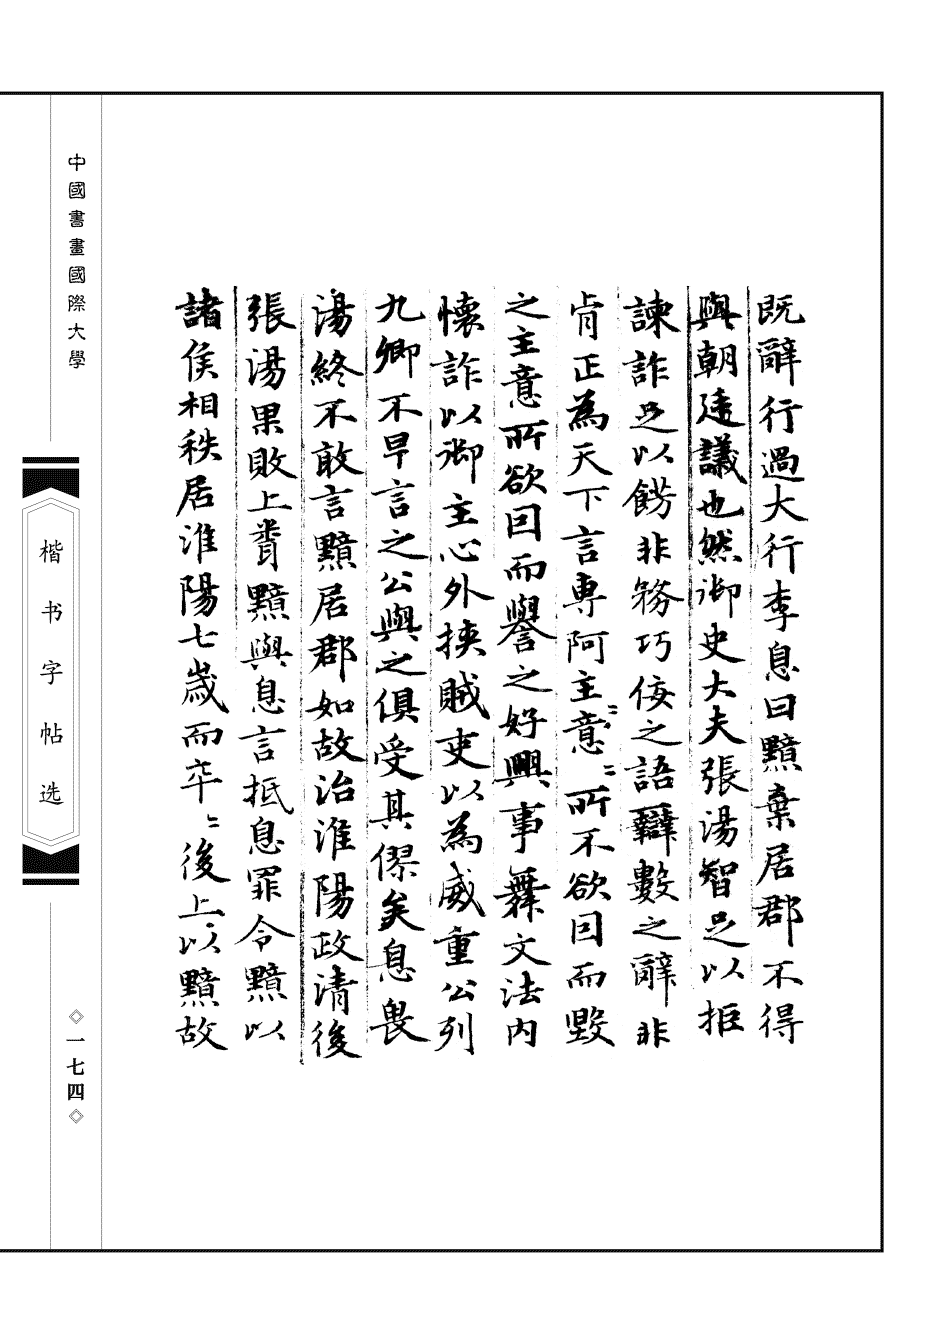 既辭行過大行李息曰黯棄居郡不得
與朝廷議也然御史大夫張湯智足以拒
諫詐足以餝非務巧佞之語辯數之辭非
肯正為天下言專阿主〻意〻所不欲因而毀
之主意所欲因而譽之好興事舞文法內
懷詐以御主心外挾賊吏以為威重公列
九卿不早言之公與之俱受其僇矣息畏
湯終不敢言黯居郡如故治淮陽政清後
張湯果敗上聞黯與息言抵息罪令黯以
諸侯相秩居淮陽七歲而卒〻後上以黯故
中國書畫國際大學
楷书字帖选
一七四